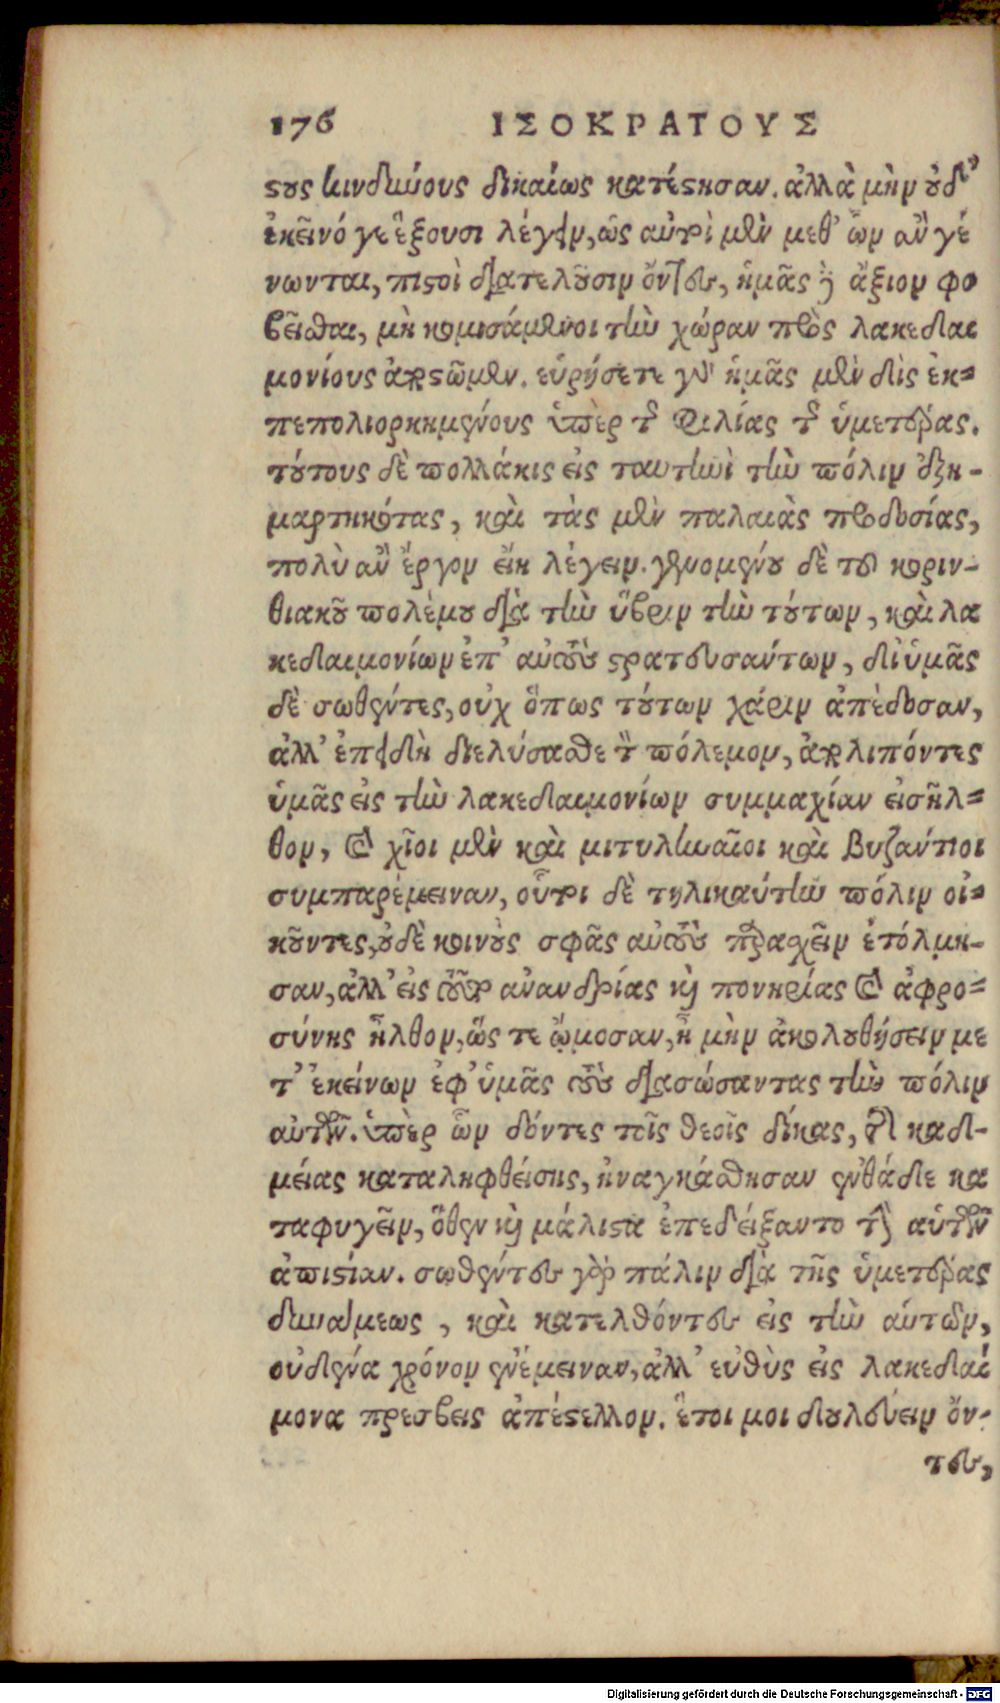 176 ΙΣΟΚΡΑΤΟΥΣ
στους κινδύνους δικαίως κατέστησαν. ἀλλὰ μὴν οὐδ'
ἐκεῖνό γε ἕξουσι λέγειν, ὡς αὐτοὶ μὲν μεθ' ὧν ἂν γέ
νωνται, πιστοὶ διατελοῦσιν ὄντες, ἡμᾶς δὲ ἄξιον φο
βεῖσθαι, μὴ κομισάμενοι τὴν χώραν πρὸς λακεδαι
μονίους ἀποστῶμεν. εὑρήσετε γὰρ ἡμᾶς μὲν δὶς ἐκ-
πεπολιορκημένους ὑπὲρ τῆς φιλίας τῆς ὑμετέρας.
τούτους δὲ πολλάκις εἰς ταυτηνὶ τὴν πόλιν ἐξη-
μαρτηκότας, καὶ τὰς μὲν παλαιὰς προδοσίας,
πολὺ ἂν ἔργον εἴη λέγειν. γενομένου δὲ τοῦ κοριν-
θιακοῦ πολέμου διὰ τὴν ὕβριν τὴν τούτων, καὶ λα
κεδαιμονίων ἐπ' αὐτοὺς στρατευσάντων, δι' ὑμᾶς
δὲ σωθέντες, οὐχ ὅπως τούτων χάριν ἀπέδοσαν,
ἀλλ' ἐπειδὴ διελύσασθε τὸν πόλεμον, ἀπολιπόντες
ὑμᾶς εἰς τὴν λακεδαιμονίων συμμαχίαν εἰσῆλ-
θον, καὶ χῖοι μὲν καὶ μιτυληναῖοι καὶ Βυζάντιοι
συμπαρέμειναν, οὗτοι δὲ τηλικαύτην πόλιν οἰ-
κοῦντες, οὐδὲ κοινοὺς σφᾶς αὐτοὺς παρασχεῖν ἐτόλμη-
σαν, ἀλλ' εἰς τοῦτο ἀνανδρίας καὶ πονηρίας καὶ ἀφρο-
σύνης ἦλθον, ὥς τε ὤμοσαν, ἦ μὴν ἀκολουθήσειν με
τ' ἐκείνων ἐφ' ὑμᾶς τοὺς διασώσαντας τὴν πόλιν
αὐτῶν. ὑπὲρ ὧν δόντες τοῖς θεοῖς δίκας, καὶ καδ-
μείας καταληφθείσης, ἠναγκάσθησαν ἐνθάδε κα
ταφυγεῖν, ὅθεν καὶ μάλιστα ἐπεδείξαντο τὴν αὑτῶν
ἀπιστίαν. σωθέντες γὰρ πάλιν διὰ τῆς ὑμετέρας
δυνάμεως, καὶ κατελθόντες εἰς τὴν αὑτῶν,
οὐδένα χρόνον ἐνέμειναν, ἀλλ' εὐθὺς εἰς λακεδαί
μονα πρέσβεις ἀπέστελλον. ἕτοιμοι δουλεύειν ὄν-
τες,
Digitalisierung gefördert durch die Deutsche Forschungsgemeinschaft - DFG